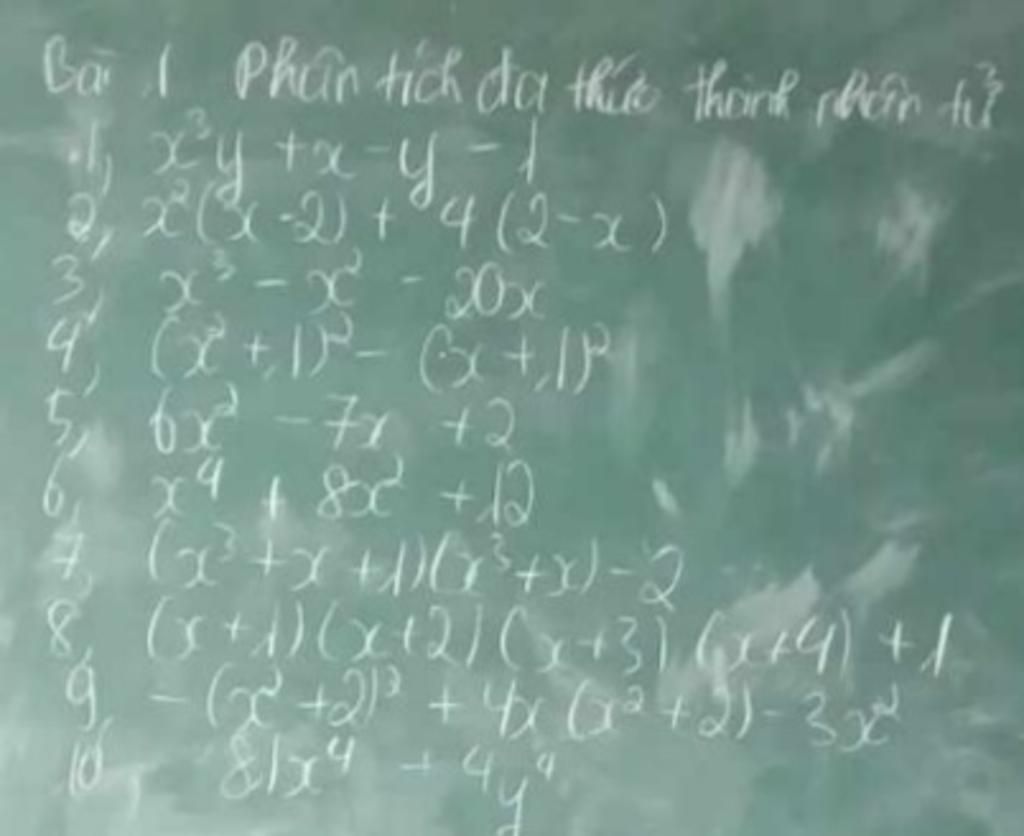 Bài 1 Phân tích đa thức thành nhân tử
1, x³y + x - y - 1
2, x²(x-2) + 4(2-x)
3, x³ - x² - 20x
4, (x²+1)² - (x+1)²
5, 6x² - 7x + 2
6, x⁴ + 8x² + 12
7, (x³+x+1)(x³+x) - 2
8, (x+1)(x+2)(x+3)(x+4) + 1
9, -(x²+2)² + 4x(x²+2) - 3x²
10, 81x⁴ + 4y⁴